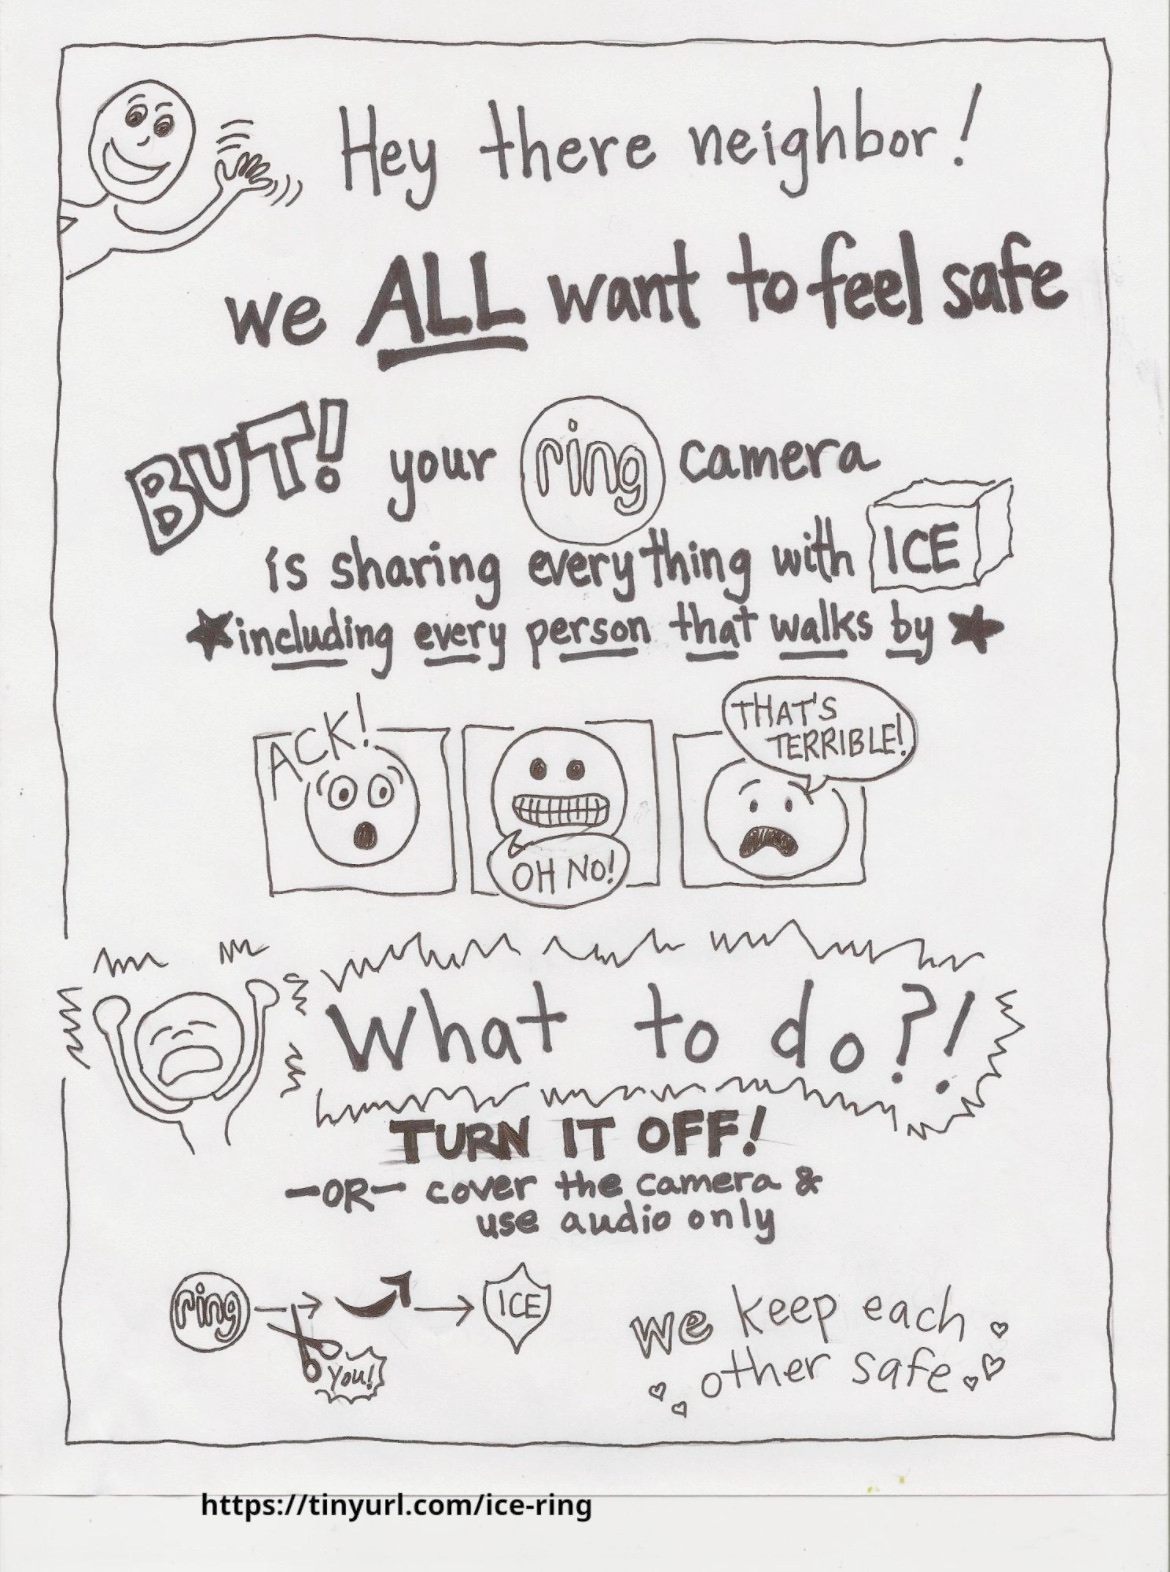 Hey there neighbor!
we ALL want to feel safe
BUT! your ring camera
is sharing everything with ICE
including every person that walks by
ACK!
OH NO!
THAT'S
TERRIBLE!
What to do?!
TURN IT OFF!
-OR- cover the camera &
use audio only
ring
ICE
You!
we keep each
other safe
https://tinyurl.com/ice-ring